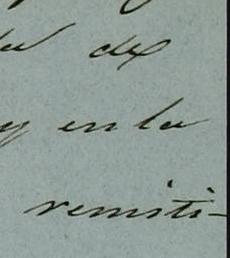 de
y en la
remiti-